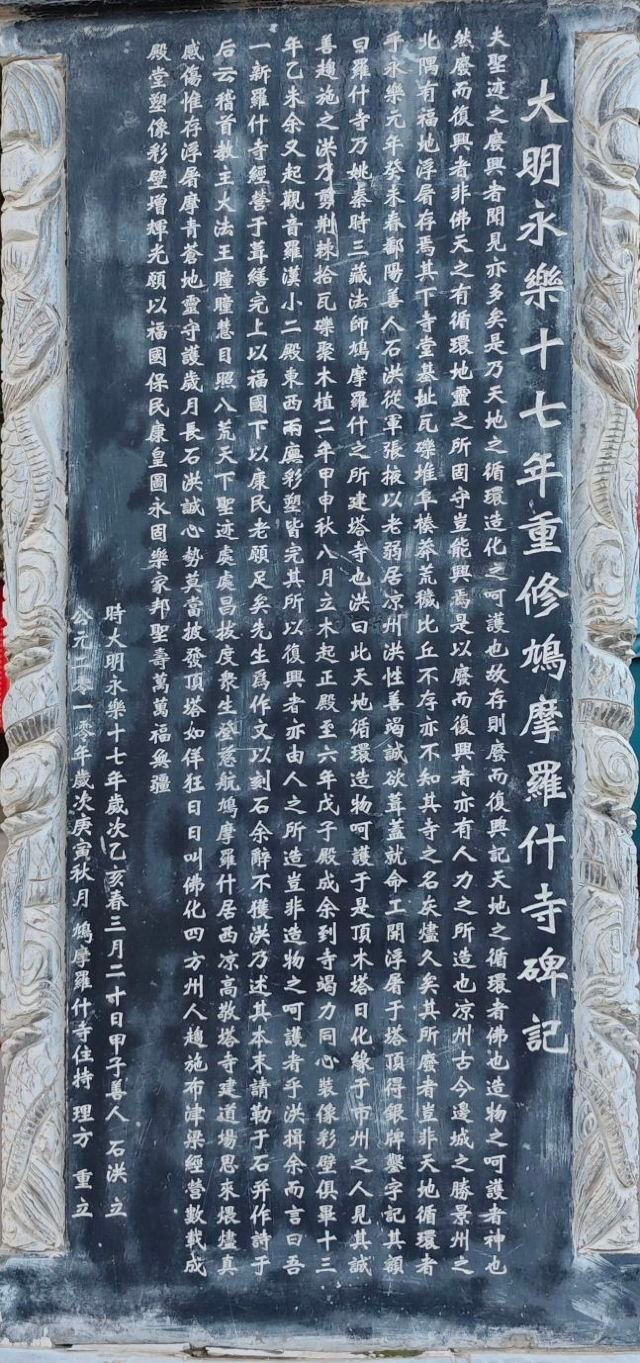 大明永樂十七年重修鳩摩羅什寺碑記
夫聖迹之廢興者聞見亦多矣是乃天地之循環造化之呵護也故存則廢而復興記天地之循環者佛也造物之呵護者神也
然廢而復興者非佛天之有循環地靈之所固守豈能興焉是以廢而復興者亦有人力之所造也凉州古今邊城之勝景州之
北隅有福地浮屠存焉其下寺堂基址瓦礫堆阜榛莽荒穢比丘不存亦不知其寺之名灰燼久矣其所廢者豈非天地循環者
乎永樂元年癸未春鄱陽善人石洪從軍張掖以老弱居凉州洪性善竭誠欲葺蓋就命工開浮屠于塔頂得銀牌鑿字記其額
曰羅什寺乃姚秦時三藏法師鳩摩羅什之所建塔寺也洪曰此天地循環造物呵護于是頂木塔日化緣于市州之人見其誠
善趨施之洪乃剪荆棘拾瓦礫聚木植二年甲申秋八月立木起正殿至六年戊子殿成余到寺竭力同心裝像彩壁俱畢十三
年乙未余又起觀音羅漢小二殿東西兩廡彩塑皆完其所以復興者亦由人之所造豈非造物之呵護者乎洪揖余而言曰吾
一新羅什寺經營于葺繕完上以福國下以康民老願足矣先生爲作文以刻石余辭不獲洪乃述其本末請勒于石并作詩于
后云稽首教主大法王瞳瞳慧目照八荒天下聖迹處處昌拔度衆生登慈航鳩摩羅什居西凉高敞塔寺建道場思來煨燼真
感傷惟存浮屠摩青蒼地靈守護歲月長石洪誠心勢莫當披發頂塔如佯狂日日叫佛化四方州人趨施布津梁經營數載成
殿堂塑像彩壁增輝光願以福國保民康皇圖永固樂家邦聖壽萬萬福無疆
時大明永樂十七年歲次乙亥春三月二十日甲子善人 石洪 立
公元二零一零年歲次庚寅秋月 鳩摩羅什寺住持 理方 重立